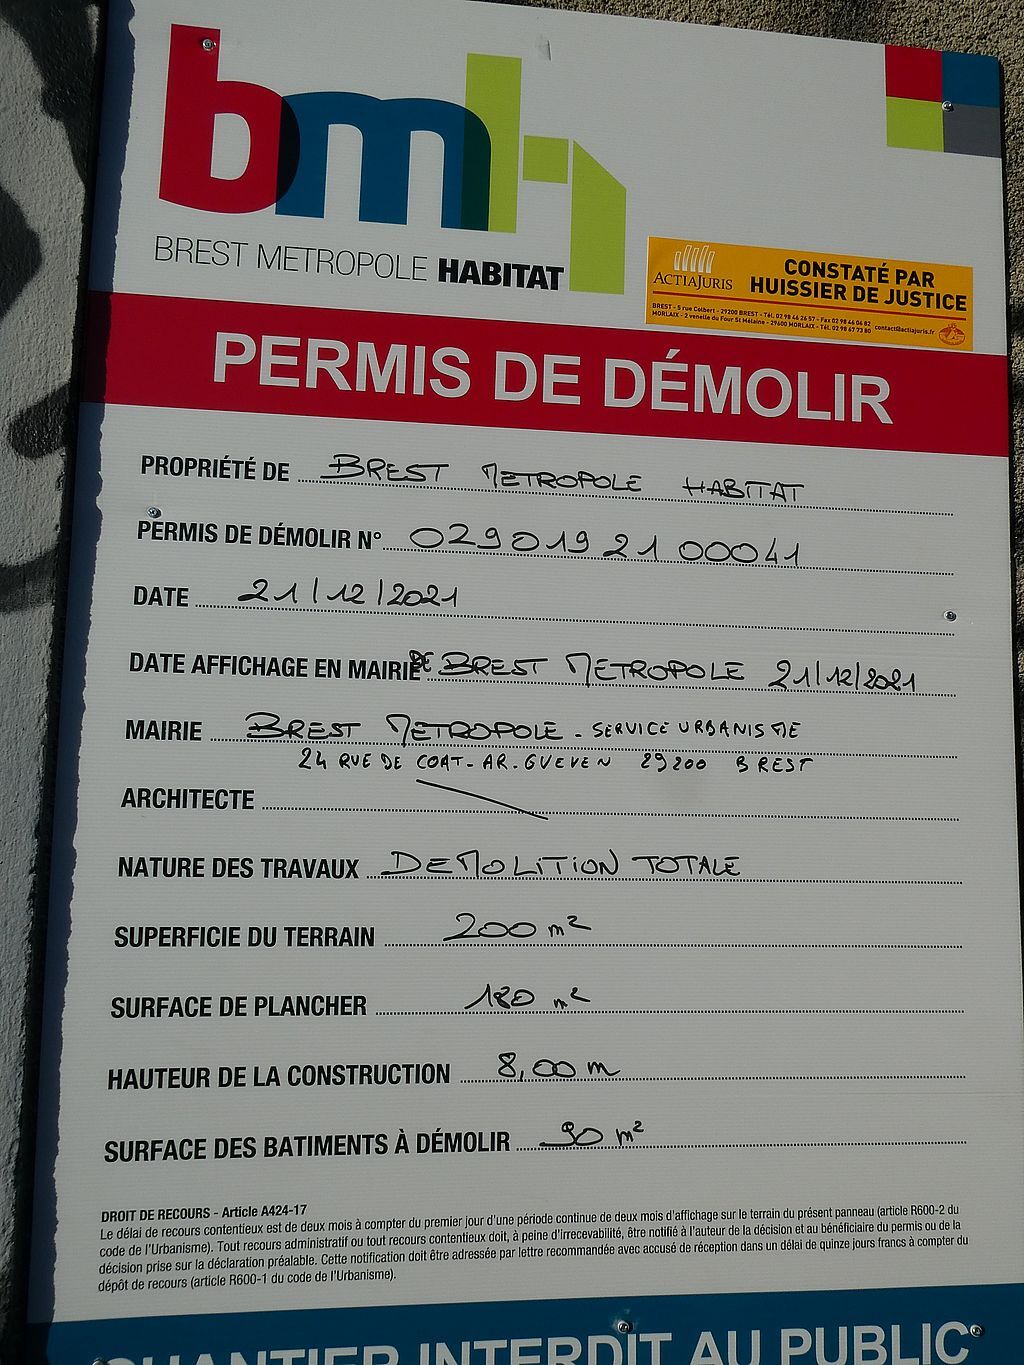 bmh
BREST METROPOLE HABITAT
ACTIAJURIS
CONSTATÉ PAR
HUISSIER DE JUSTICE
BREST - 5 rue Colbert - 29200 BREST - Tél. 02 98 46 26 57 - Fax 02 98 46 06 82
MORLAIX - 2 venelle du Four St Mélaine - 29600 MORLAIX - Tél. 02 98 67 73 80
contact@actiajuris.fr
PERMIS DE DÉMOLIR
PROPRIÉTÉ DE BREST METROPOLE HABITAT
PERMIS DE DÉMOLIR N° 029019 21 00041
DATE 21/12/2021
DATE AFFICHAGE EN MAIRIE DE BREST METROPOLE 21/12/2021
MAIRIE BREST METROPOLE - SERVICE URBANISME
24 RUE DE COAT-AR-GUEVEN 29200 BREST
ARCHITECTE
NATURE DES TRAVAUX DEMOLITION TOTALE
SUPERFICIE DU TERRAIN 200 m²
SURFACE DE PLANCHER 180 m²
HAUTEUR DE LA CONSTRUCTION 8,00 m
SURFACE DES BATIMENTS À DÉMOLIR 90 m²
DROIT DE RECOURS - Article A424-17
Le délai de recours contentieux est de deux mois à compter du premier jour d'une période continue de deux mois d'affichage sur le terrain du présent panneau (article R600-2 du
code de l'Urbanisme). Tout recours administratif ou tout recours contentieux doit, à peine d'irrecevabilité, être notifié à l'auteur de la décision et au bénéficiaire du permis ou de la
décision prise sur la déclaration préalable. Cette notification doit être adressée par lettre recommandée avec accusé de réception dans un délai de quinze jours francs à compter du
dépôt de recours (article R600-1 du code de l'Urbanisme).
CHANTIER INTERDIT AU PUBLIC